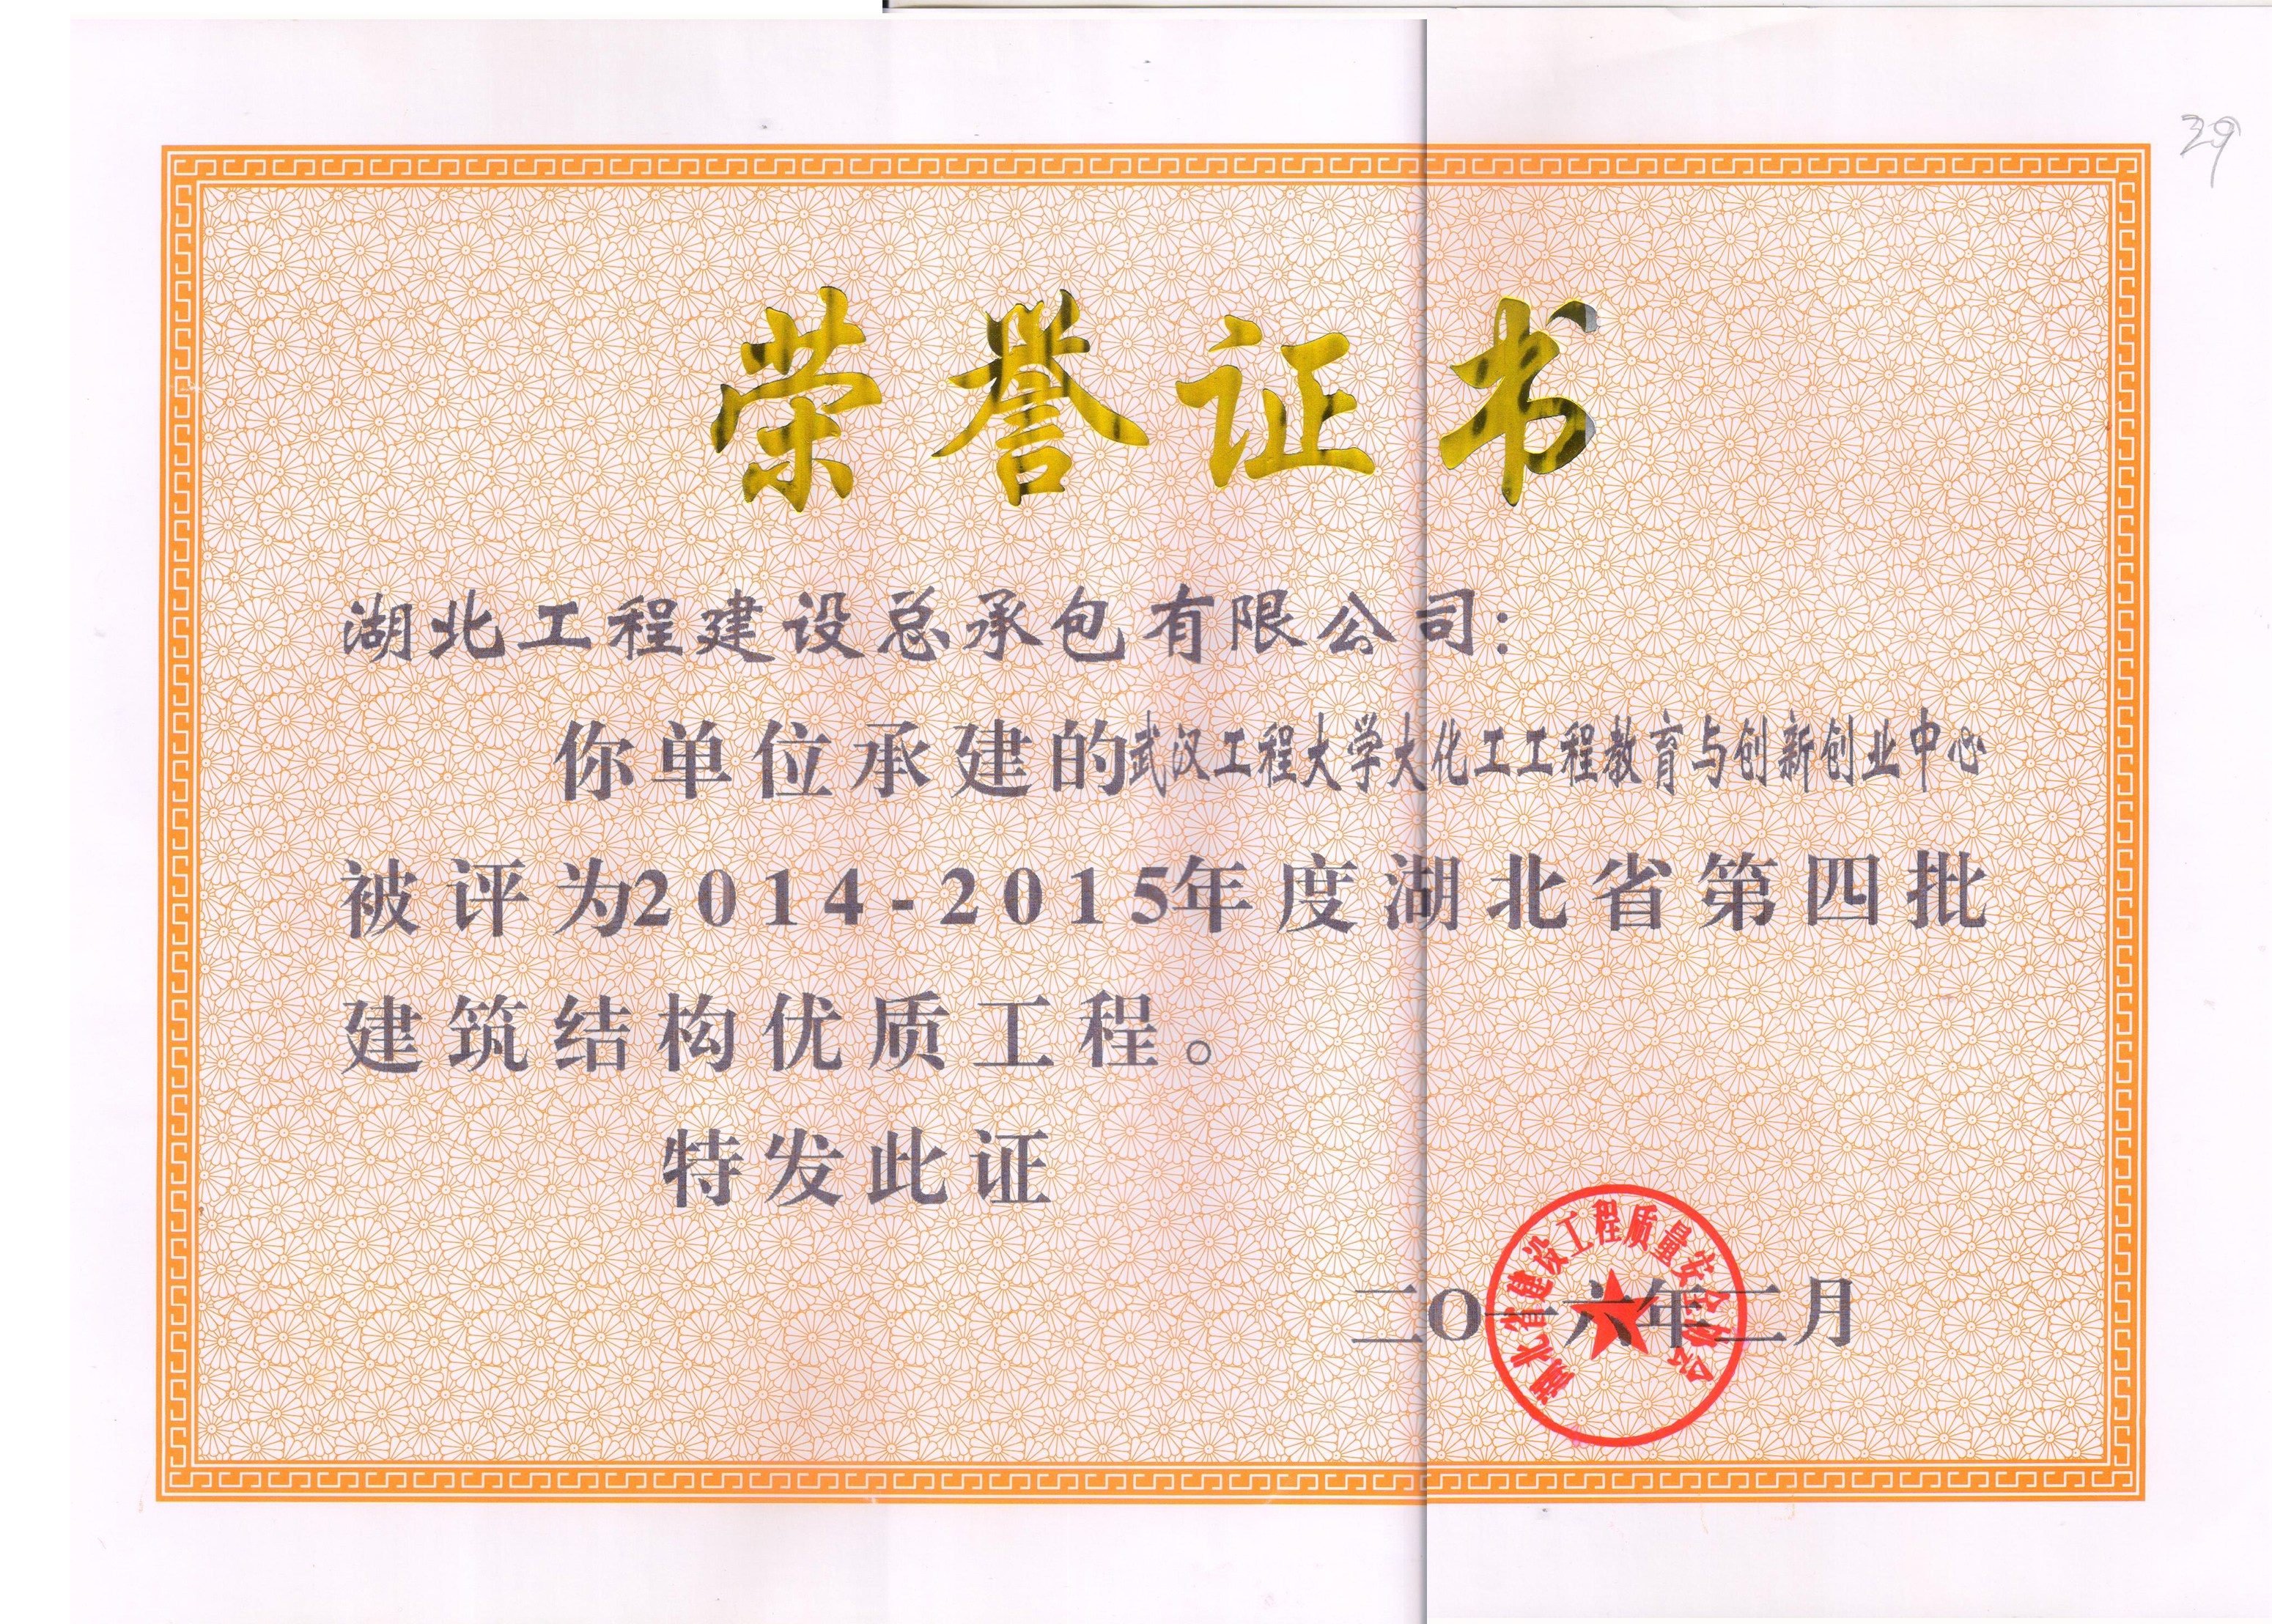 39
荣誉证书
湖北工程建设总承包有限公司：
你单位承建的武汉工程大学大化工工程教育与创新创业中心
被评为2014-2015年度湖北省第四批
建筑结构优质工程。
特发此证
二〇一六年二月
湖北省建设工程质量安全协会